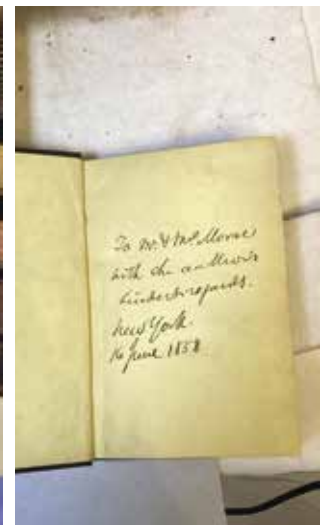 To Mr. & Mrs. Morse
with the author's
kindest regards.
New York.
16 June 1858